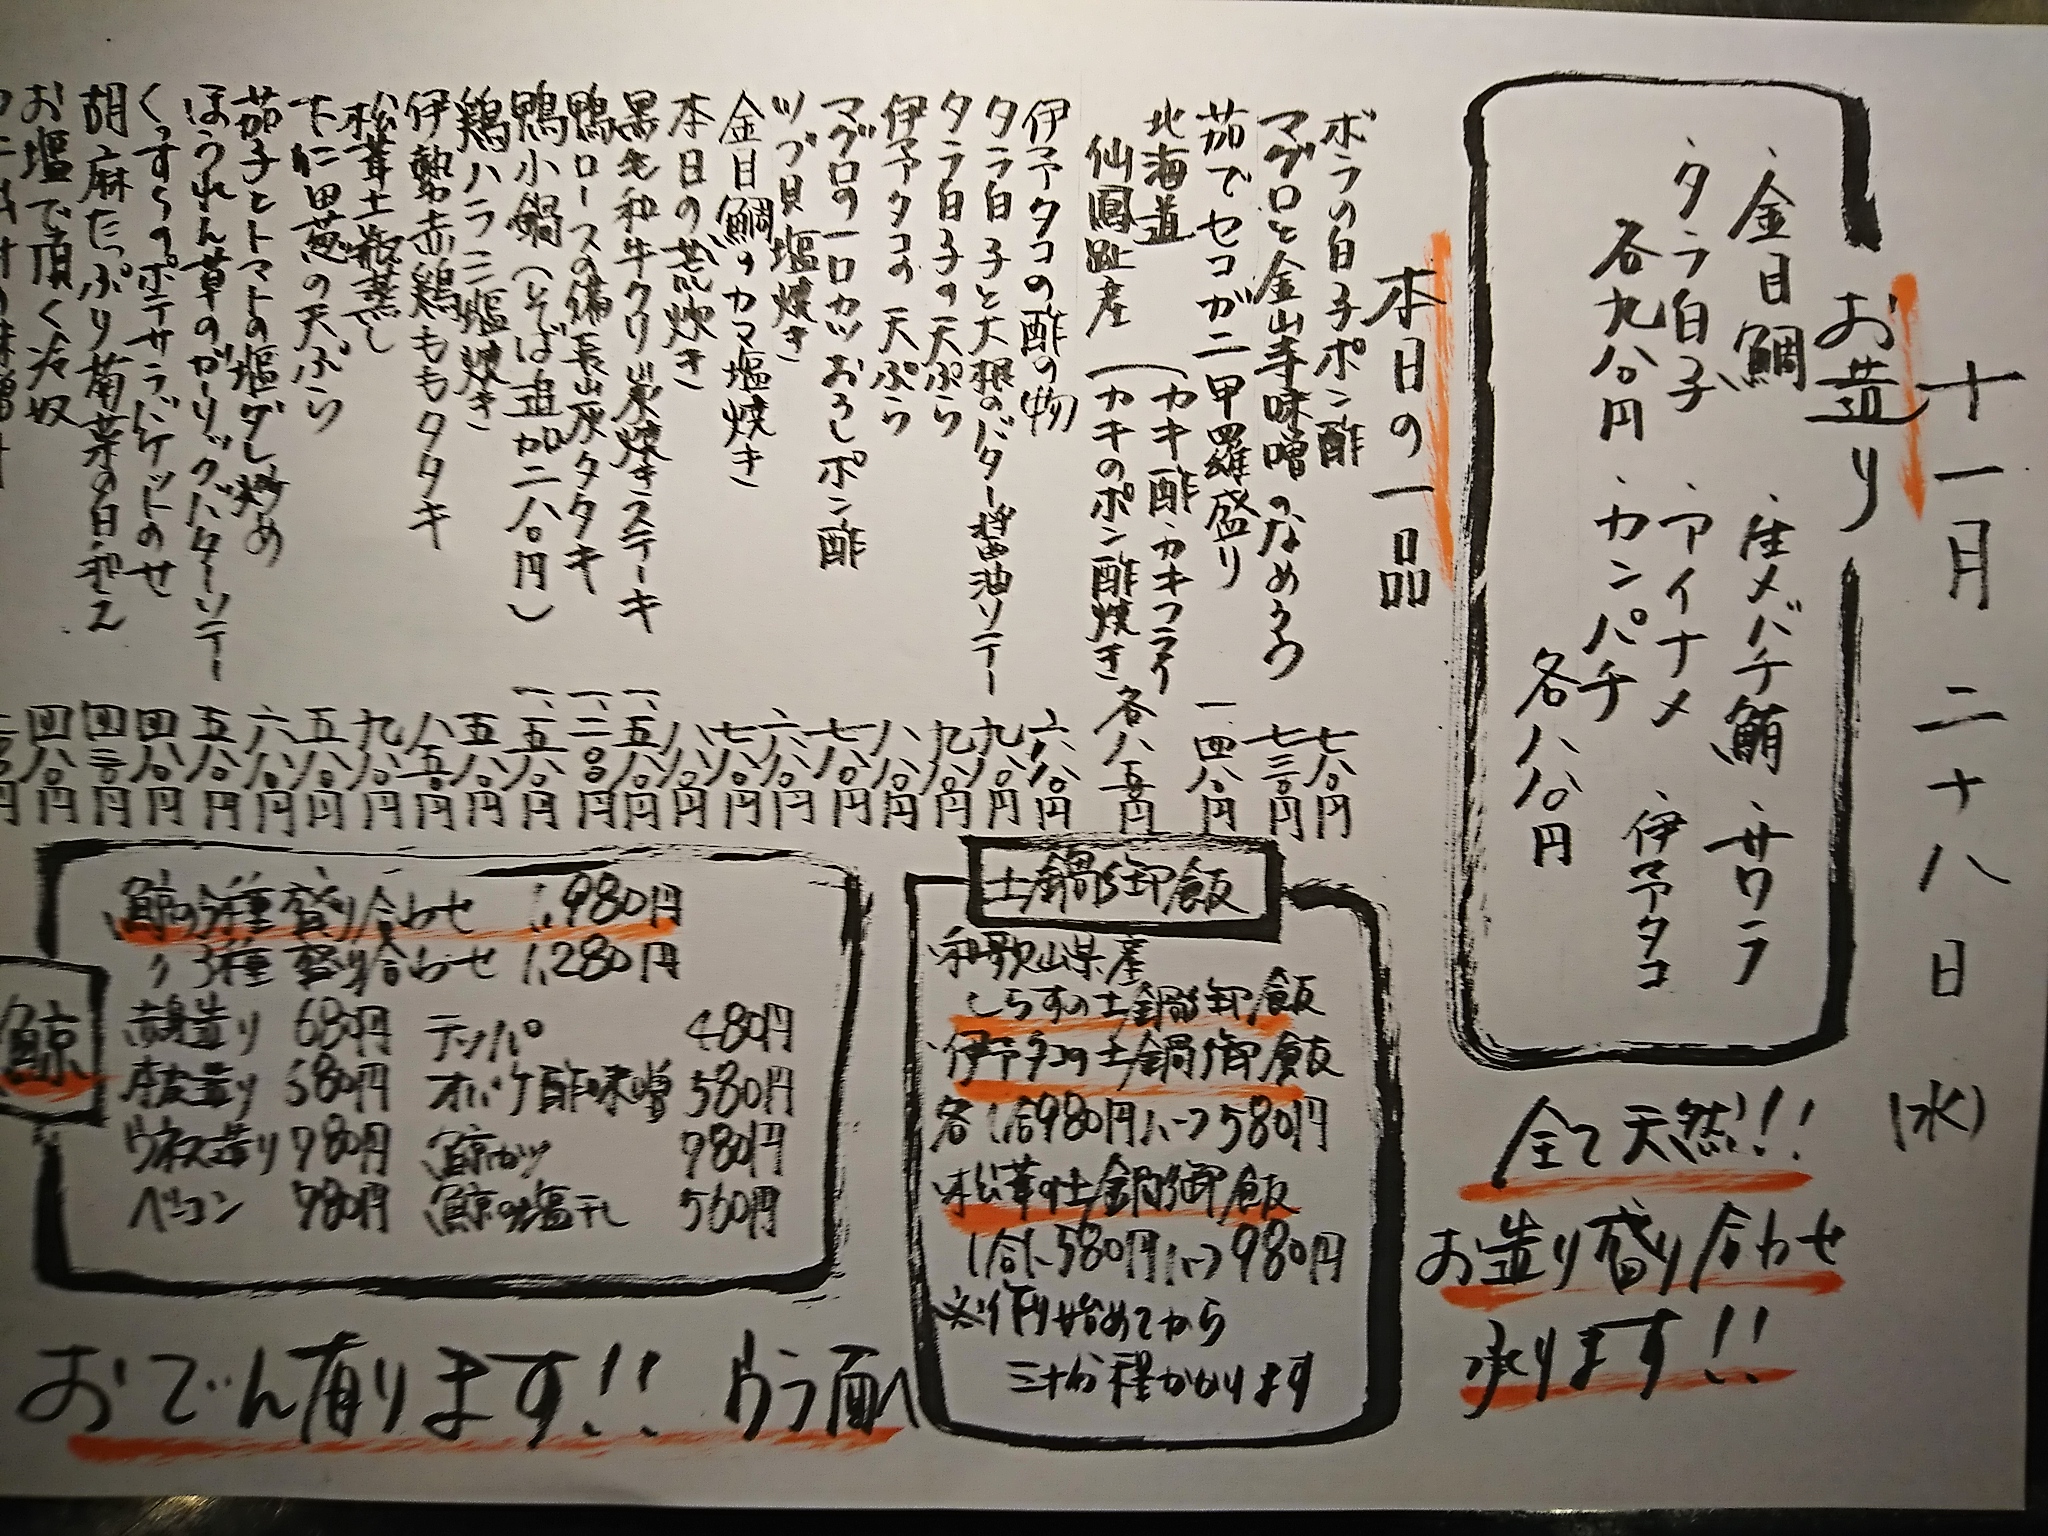 十一月二十八日(水)
お造り
・金目鯛 ・生メバチ鮪 ・サワラ
・タラ白子 ・アイナメ ・伊予タコ
各九八〇円 ・カンパチ
各八八〇円
全て天然!!
お造り盛り合わせ
承ります!!
本日の一品
ボラの白子ポン酢 七八〇円
マグロと金山寺味噌のなめろう 七三〇円
茹でセコガニ甲羅盛り 一、四八〇円
北海道 (カキ酢・カキフライ
仙鳳趾産 (カキのポン酢焼き 各八五〇円
伊予タコの酢の物 六八〇円
タラ白子と大根のバター醤油ソテー 九八〇円
タラ白子の天ぷら 九八〇円
伊予タコの天ぷら 八八〇円
マグロの一口カツおろしポン酢 七八〇円
ツブ貝塩焼き 六八〇円
金目鯛のカマ塩焼き 七八〇円
本日の荒炊き 八八〇円
黒毛和牛クリ炭焼きステーキ 一、五八〇円
鴨ロースの備長炭タタキ 一、二〇〇円
鴨小鍋(そば追加二八〇円) 一、五八〇円
鶏ハラミ塩焼き 五八〇円
伊勢赤鶏ももタタキ 八五〇円
松茸土瓶蒸し 九八〇円
下仁田葱の天ぷら 五八〇円
茄子とトマトの塩ダレ炒め 六八〇円
ほうれん草のガーリックバターソテー 五八〇円
くずしポテサラバケットのせ 四八〇円
胡麻たっぷり菊菜の白和え 四三〇円
お塩で頂く冷奴 四八〇円
土鍋御飯
・和歌山県産
しらすの土鍋御飯
・伊予タコの土鍋御飯
各1合980円ハーフ580円
・松茸の土鍋御飯
1合1,580円ハーフ980円
※作り始めてから
三十分程かかります
鯨
・鯨の5種盛り合わせ 1,980円
〃 3種盛り合わせ 1,280円
赤身造り 680円 テッパ 480円
本皮造り 580円 オバケ酢味噌 580円
ウネス造り 980円 鯨カツ 980円
ベーコン 980円 鯨の塩干し 560円
おでん有ります!! ウラ面へ